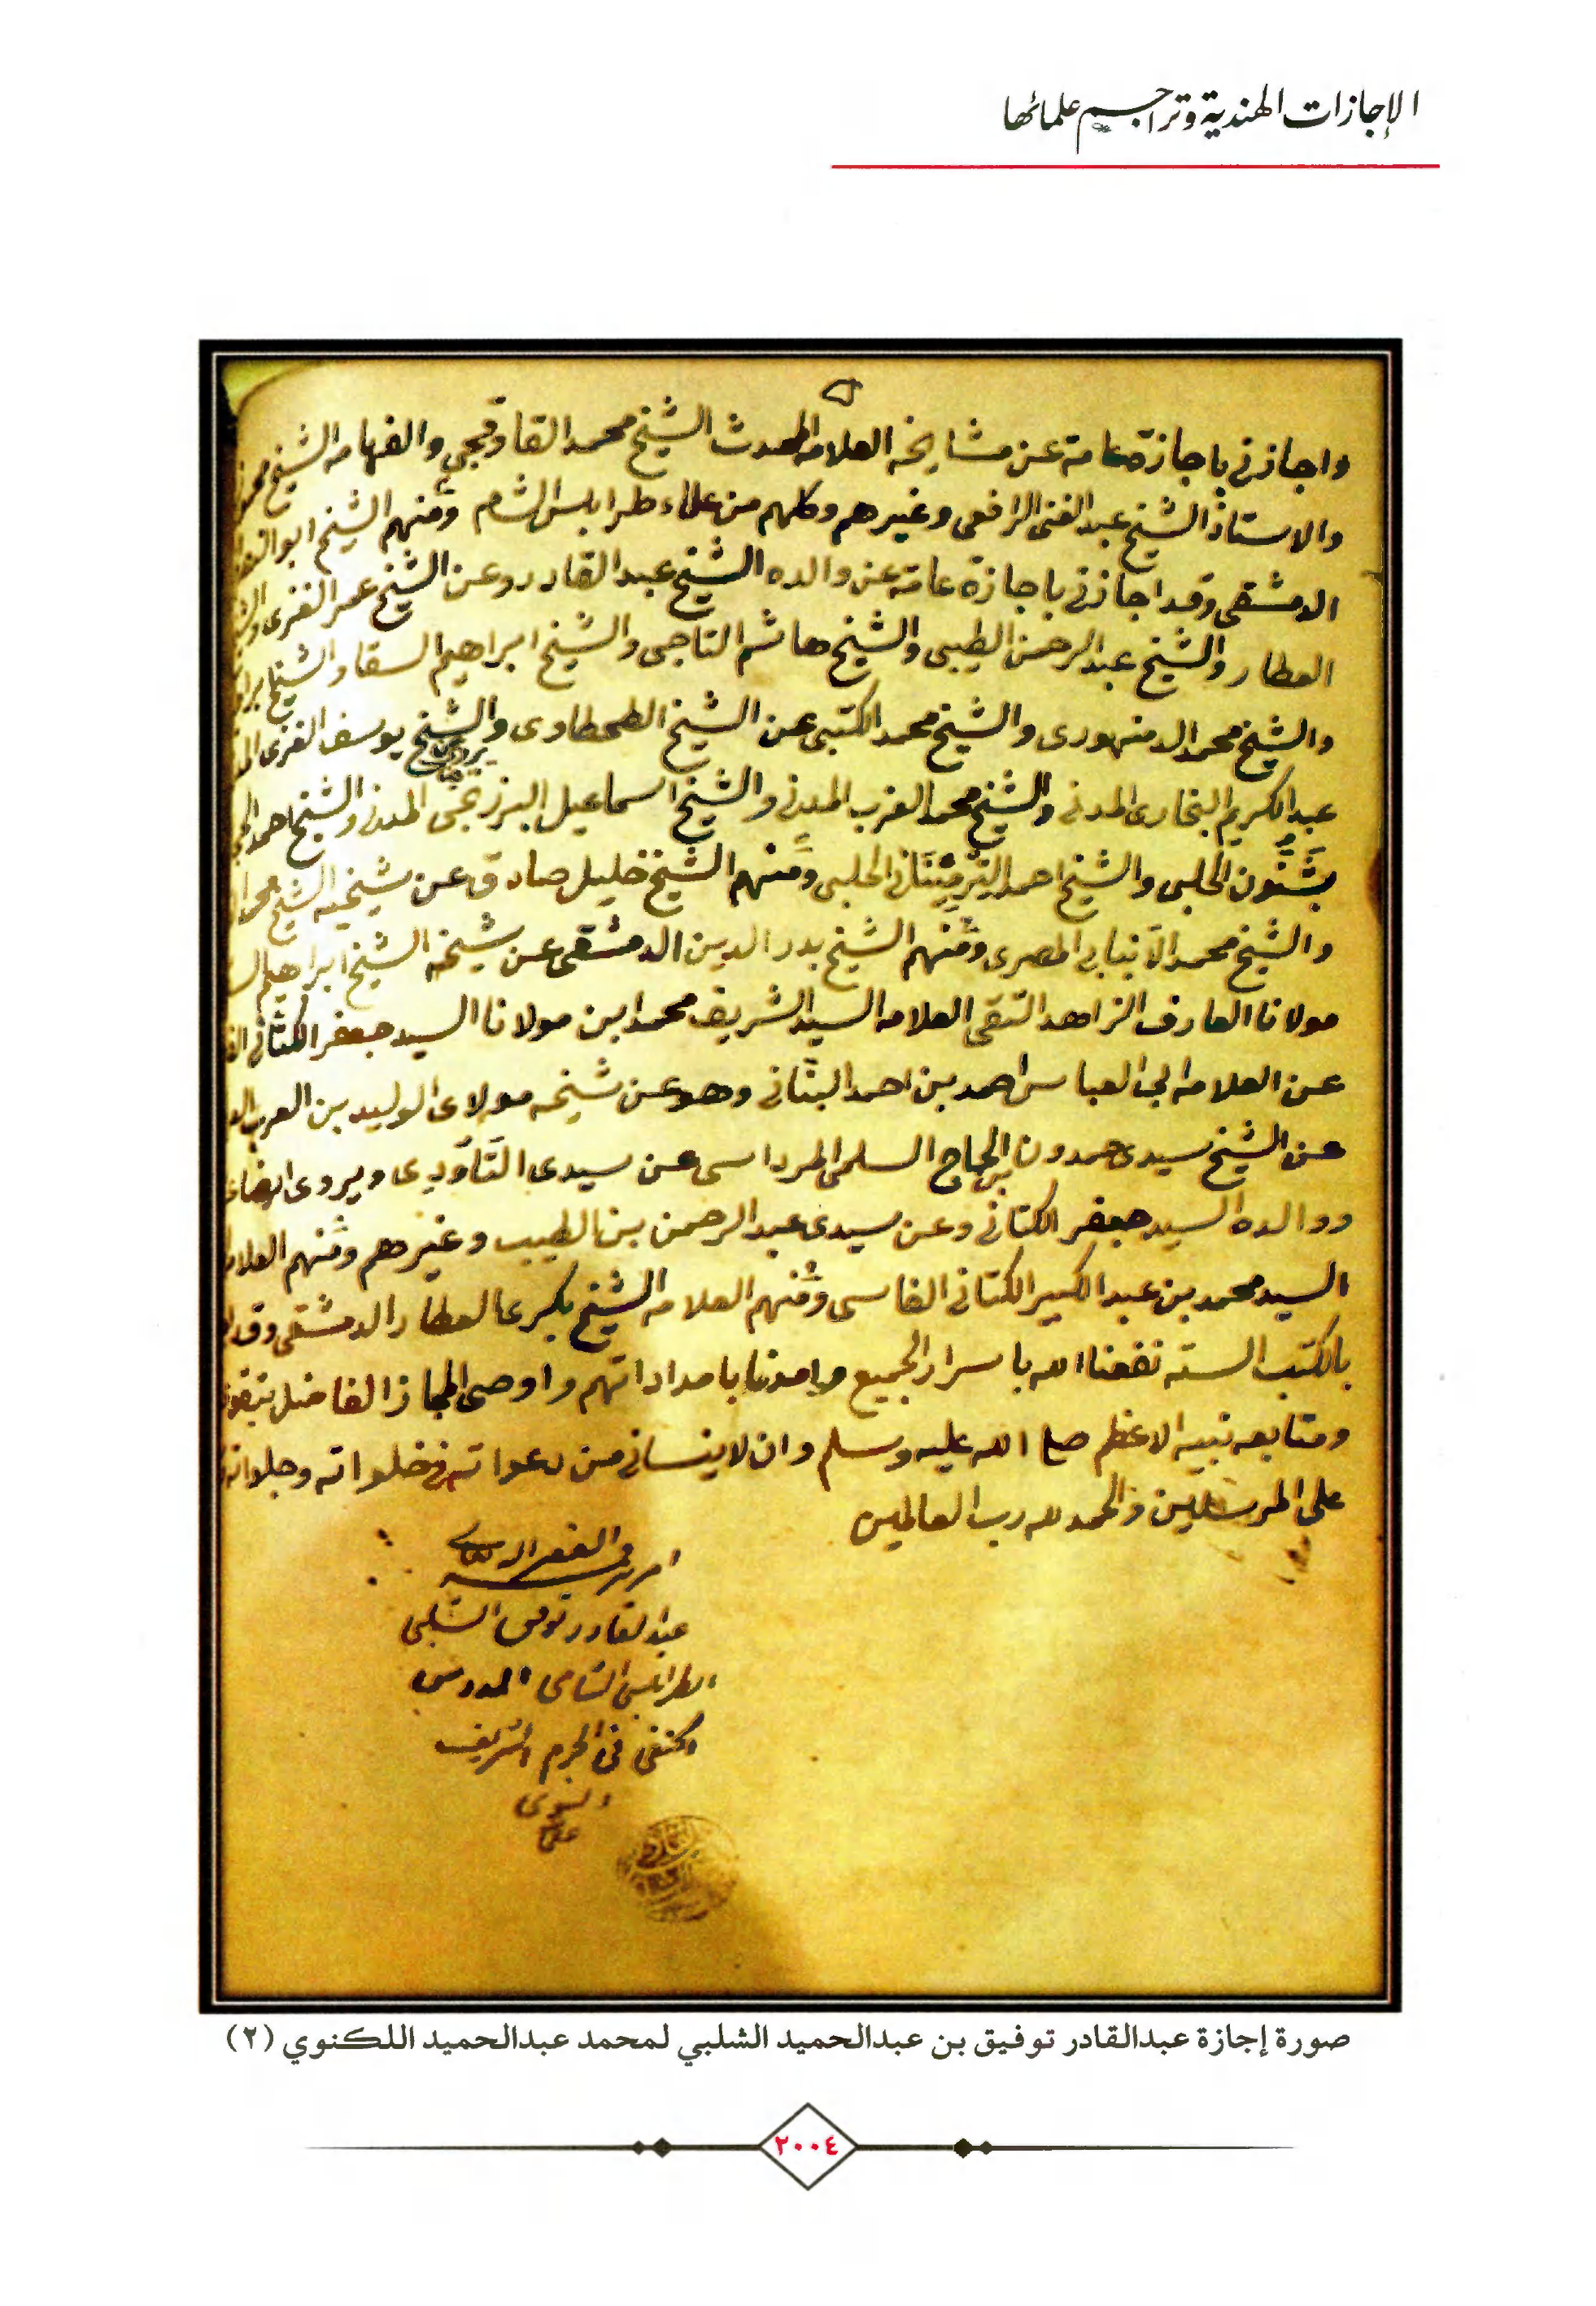 الإجازات الهندية وتراجم علمائها
واجازني باجازة عامة عن مشايخه العلامه المحدث الشيخ محمد القاوقجي والفهامه الشيخ محمود
والاستاذ الشيخ عبد الغنى الرافعى وغيرهم وكلهم من علماء طرابلس الشام ومنهم الشيخ ابو النصر
الدمشقى وقد اجازني باجازة عامة عن والده الشيخ عبد القادر وعن الشيخ عمر الغزى
العطار والشيخ عبد الرحمن الطيبى والشيخ هاشم التاجى والشيخ ابراهيم السقا والشيخ
والشيخ محمد الدمنهورى والشيخ محمد الكتبى عن الشيخ الطحطاوى والشيخ يوسف الغزى
عبد الكريم البخارى المدنى والشيخ محمد العزب المدنى والشيخ اسماعيل البرزنجى المدنى والشيخ احمد
الحلبى والشيخ احمد الترمنتانى الحلبى ومنهم الشيخ خليل صادق عن شيخيه الشيخ
والشيخ محمد الانبابى المصرى ومنهم الشيخ بدر الدين الدمشقى عن شيخه الشيخ ابراهيم
مولانا العارف الزاهد التقى العلامه السيد الشريف محمد ابن مولانا السيد جعفر الكتانى
عن العلامه ابى العباس احمد بن احمد البنانى وهو عن شيخه مولاى الوليد بن العربى
عن الشيخ سيدى حمدون بن الحاج السلمى المرداسى عن سيدى التاودى ويروى ايضا
ووالده السيد جعفر الكتانى وعن سيدى عبد الرحمن بن الطيب وغيرهم ومنهم
السيد محمد بن عبد الكبير الكتانى الفاسى ومنهم العلامه الشيخ بكرى العطار الدمشقى
بالكتب الستة نفعنا الله باسرار الجميع وامدنا بامداداتهم واوصى المجاز الفاضل
ومتابعه نبيه الاعظم صلى الله عليه وسلم وان لا ينسانى من دعواته فى خلواته وجلواته
على المرسلين والحمد لله رب العالمين
الفقير اليه تعالى
عبد القادر توفيق الشلبى
الطرابلسى الشامى المدرس
الحنفى فى الحرم الشريف
صورة إجازة عبدالقادر توفيق بن عبدالحميد الشلبي لمحمد عبدالحميد اللكنوي (٢)
٢٠٠٤